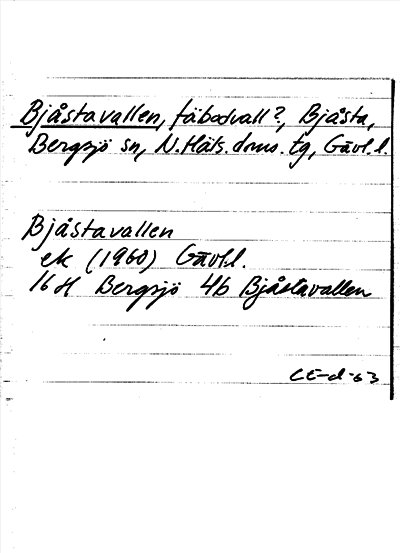 Bjåstavallen, fäbodvall?, Bjåsta,
Bergsjö sn, N. Häls. doms. tg, Gävl. l.
Bjåstavallen
ek (1960) Gävl.l.
16H Bergsjö 4b Bjåstavallen